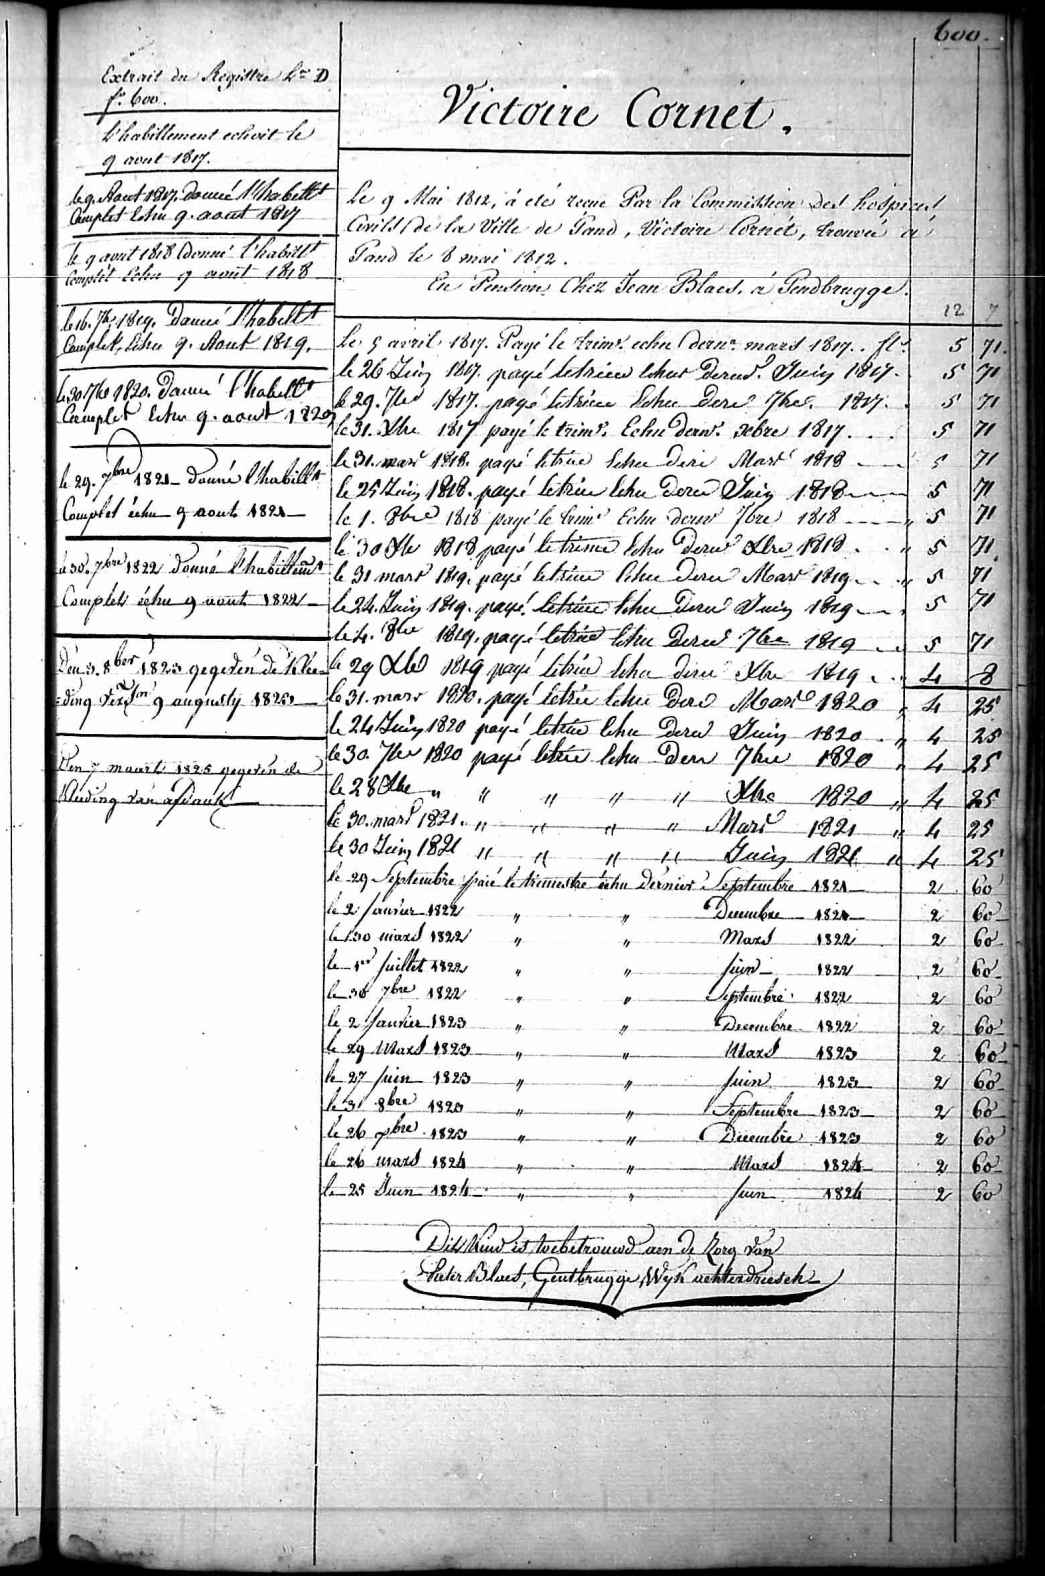 600.
Extrait du Registre L.ra D
f.o 600.
L'habillement echoit le
9 aout 1817.
le 9. Aout 1817. Donné l'habillt
Complet Echu 9. aout 1817
le 9 aout 1818 Donné l'habillt
Complét Echu 9 aout 1818
le 16. 7bre 1819. Donné l'habillt
Complet, Echu 9. Aout 1819.
le 30 7bre 1820. Donné l'habillt
Complet Echu 9. aout 1820
le 29. 7bre 1821 donné l'habillt
Complet échu 9 aout 1821
le 30. 7bre 1822 donné l'habillemt
Complét échu 9 aout 1822
Den 3. 8ber 1823 gegevén de klee-
=ding 9 augusty 1823
Den 7 maart 1825 gegevén de
kleeding van
Victoire Cornét.
Le 9 Mai 1812, á été recue Par la Commission des hospices
Civils de la Ville de Gand, Victoire Cornét, trouvée á
Gand le 8 mai 1812.
En Pension Chez Jean Blaes. á Gendbrugge.
12 7
Le 5 avril 1817. Payé le trimr. echu dernr. mars 1817. . fls. 5 71.
le 26 Juin 1817. payé letrim echu dernr. Juin 1817. 5 71
le 29. 7bre 1817. payé letrim Echu dernr 7bre. 1817. 5 71
le 31. Xbre 1817 payé le trimr. Echu dernr. xbre 1817. . . . 5 71
le 31. mars 1818. payé letrim Echu dernr Mars 1818 5 71
le 25 Juin 1818. payé letrim Echu dernr Juin 1818 5 71
le 1. 8bre 1818 payé le trimr Echu dernr 7bre 1818 " 5 71
le 30 Xbre 1818 payé letrime Echu dernr Xbre 1818. . . " 5 71.
le 31 mars 1819. payé letrim Echu dernr Mars 1819. . " 5 71
le 24. Juin 1819. payé. letrim Echu Dernr Juin 1819 5 71
le 4. 8bre 1819. payé letrim Echu Dernr 7bre 1819 5 71
le 29 Xbre 1819 payé letrim Echu dernr Xbre 1819 . . 4 8
le 31. mars 1820. payé letrim Echu Dernr Mars 1820 " 4 25
le 24 Juin 1820 payé letrim Echu Dernr Juin 1820 . " 4 25
le 30. 7bre 1820 payé letrim Echu Dernr 7bre 1820 " 4 25
le 28 Xbre " " " " " Xbre 1820 " 4 25
le 30. mars 1821. " " " " Mars 1821 " 4 25
le 30 Juin 1821 " " " " Juin 1821 " 4 25
le 29 Septembre paié le trimestre échu dérnier Septembre 1821 2 60
le 2 janvier 1822 " " Decembre 1821 2 60
le 30 mars 1822 " " Mars 1822 2 60
le 1er juillet 1822 " " juin 1822 2 60
le 30 7bre 1822 " " Septembre 1822 2 60
le 2 janvier 1823 " " Decembre 1822 2 60
le 29 Mars 1823 " " Mars 1823 2 60
le 27 juin 1823 " " juin 1823 2 60
le 31 8bre 1823 " " Septembre 1823 2 60
le 26 xbre 1823 " " Decembre 1823 2 60
le 26 mars 1824 " " Mars 1824 2 60
le 25 Juin 1824 " " juin 1824 2 60
Dit kind is toebetrouwd aen de zorg van
Pieter Blaes, Gentbrugge, Wyk achterdriesch